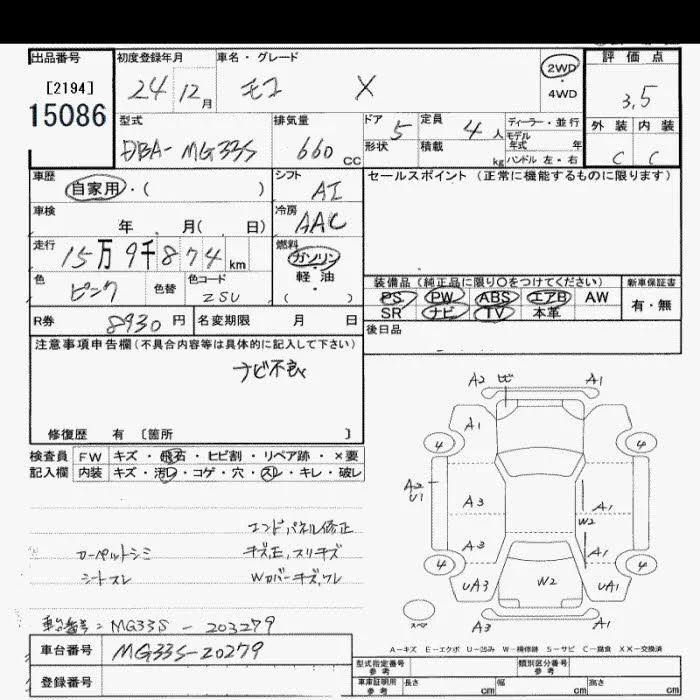 出品番号 初度登録年月 車名・グレード 評価点
[2194] 24 12月 モコ X 2WD 4WD 3.5
15086
型式 排気量 ドア 5 定員 4人 ディーラー・並行 外装 内装
DBA-MG33S 660 CC 形状 積載 kg モデル年式 年 ハンドル 左・右 C C
車歴 シフト セールスポイント (正常に機能するものに限ります)
自家用・( ) AT
車検 冷房
年 月( 日) AAC
走行 燃料
15万9千874km ガソリン・軽油
色 色替 色コード ( )
ピンク ZSU
装備品 (純正品に限り〇をつけてください) 新車保証書
PS PW ABS エアB AW 有・無
SR ナビ TV 本革
R券 8930円 名変期限 月 日
後日品
注意事項申告欄(不具合内容等は具体的に記入して下さい)
ナビ不良
修復歴 有 〔箇所 〕
検査員 FW キズ・飛石・ヒビ割・リペア跡・×要
記入欄 内装 キズ・汚レ・コゲ・穴・スレ・キレ・破レ
エンドパネル修正
カーペットシミ キズ,E,スリキズ
シートスレ Wカバーキズ,ワレ
車台番号:MG33S-203279
車台番号 MG33S-20279
登録番号
A2 ヒビ A1
A1
4 4
A2
U1
A3 A1
W2
A3 A1
4 4
UA3 W2 UA1
スペア
A3 A1
A-キズ E-エクボ U-凹み W-補修跡 S-サビ C-腐食 XX-交換済
型式指定番号 参考 類別区分番号 参考
車庫証明用 参考 長さ cm 幅 cm 高さ cm